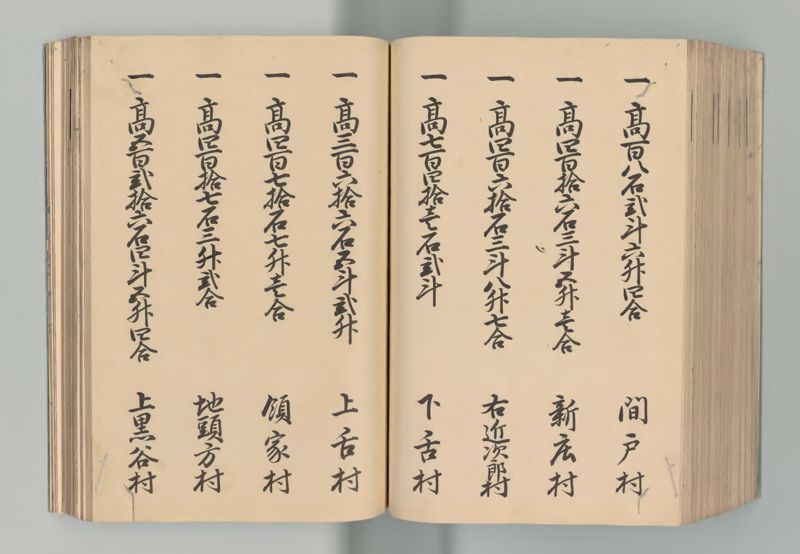 一 高百八石弐斗六升四合 間戸村
一 高四百拾六石三斗五升壱合 新庄村
一 高四百六拾石三斗八升七合 右近次郎村
一 高七百四拾壱石弐斗 下舌村
一 高三百六拾六石五斗弐升 上舌村
一 高四百七拾石七升壱合 領家村
一 高四百拾七石三升弐合 地頭方村
一 高五百弐拾六石四斗五升四合 上黒谷村